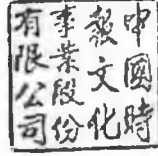 中國時
報文化
事業股份
有限公司